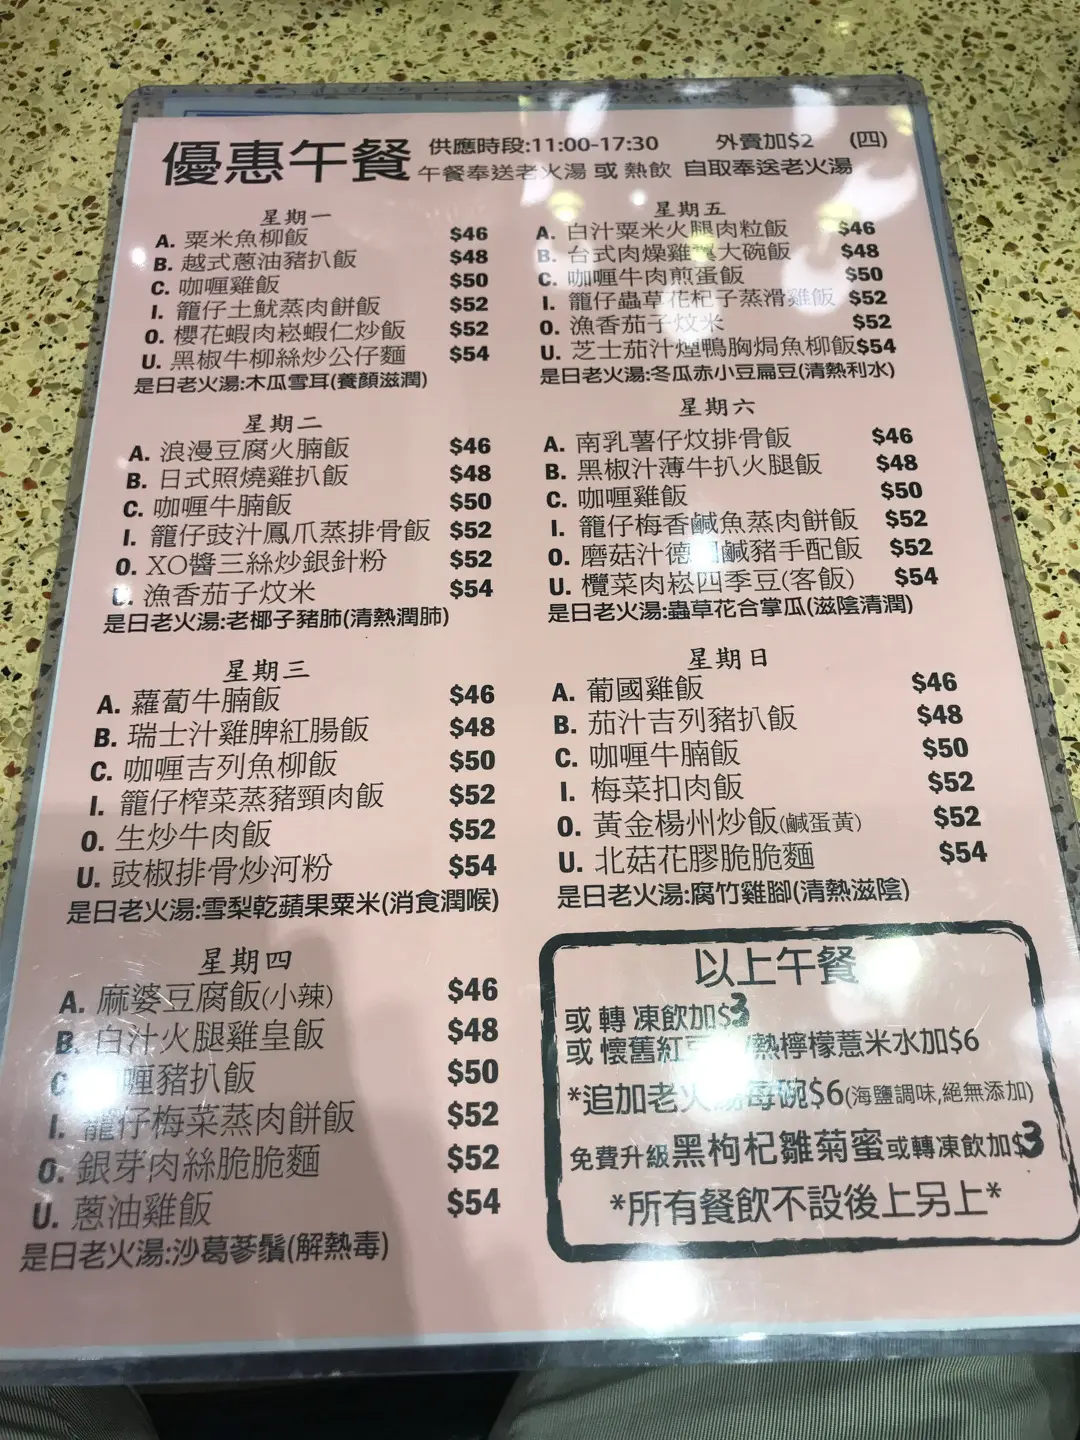 優惠午餐 供應時段:11:00-17:30 外賣加$2 (四)
午餐奉送老火湯 或 熱飲 自取奉送老火湯
星期一
A. 粟米魚柳飯 $46
B. 越式蔥油豬扒飯 $48
C. 咖喱雞飯 $50
I. 籠仔土魷蒸肉餅飯 $52
O. 櫻花蝦肉崧蝦仁炒飯 $52
U. 黑椒牛柳絲炒公仔麵 $54
是日老火湯:木瓜雪耳(養顏滋潤)
星期二
A. 浪漫豆腐火腩飯 $46
B. 日式照燒雞扒飯 $48
C. 咖喱牛腩飯 $50
I. 籠仔豉汁鳳爪蒸排骨飯 $52
O. XO醬三絲炒銀針粉 $52
U. 漁香茄子炆米 $54
是日老火湯:老椰子豬肺(清熱潤肺)
星期三
A. 蘿蔔牛腩飯 $46
B. 瑞士汁雞脾紅腸飯 $48
C. 咖喱吉列魚柳飯 $50
I. 籠仔榨菜蒸豬頸肉飯 $52
O. 生炒牛肉飯 $52
U. 豉椒排骨炒河粉 $54
是日老火湯:雪梨乾蘋果粟米(消食潤喉)
星期四
A. 麻婆豆腐飯(小辣) $46
B. 白汁火腿雞皇飯 $48
C. 喱豬扒飯 $50
I. 籠仔梅菜蒸肉餅飯 $52
O. 銀芽肉絲脆脆麵 $52
U. 蔥油雞飯 $54
是日老火湯:沙葛蔘鬚(解熱毒)
星期五
A. 白汁粟米火腿肉粒飯 $46
B. 台式肉燥雞翼大碗飯 $48
C. 咖喱牛肉煎蛋飯 $50
I. 籠仔蟲草花杞子蒸滑雞飯 $52
O. 漁香茄子炆米 $52
U. 芝士茄汁煙鴨胸焗魚柳飯 $54
是日老火湯:冬瓜赤小豆扁豆(清熱利水)
星期六
A. 南乳薯仔炆排骨飯 $46
B. 黑椒汁薄牛扒火腿飯 $48
C. 咖喱雞飯 $50
I. 籠仔梅香鹹魚蒸肉餅飯 $52
O. 磨菇汁德鹹豬手配飯 $52
U. 欖菜肉崧四季豆(客飯) $54
是日老火湯:蟲草花合掌瓜(滋陰清潤)
星期日
A. 葡國雞飯 $46
B. 茄汁吉列豬扒飯 $48
C. 咖喱牛腩飯 $50
I. 梅菜扣肉飯 $52
O. 黃金楊州炒飯(鹹蛋黃) $52
U. 北菇花膠脆脆麵 $54
是日老火湯:腐竹雞腳(清熱滋陰)
以上午餐
或 轉 凍飲加$3
或 懷舊紅豆 熱檸檬薏米水加$6
*追加老火湯每碗$6(海鹽調味,絕無添加)
免費升級黑枸杞雛菊蜜或轉凍飲加$3
*所有餐飲不設後上另上*